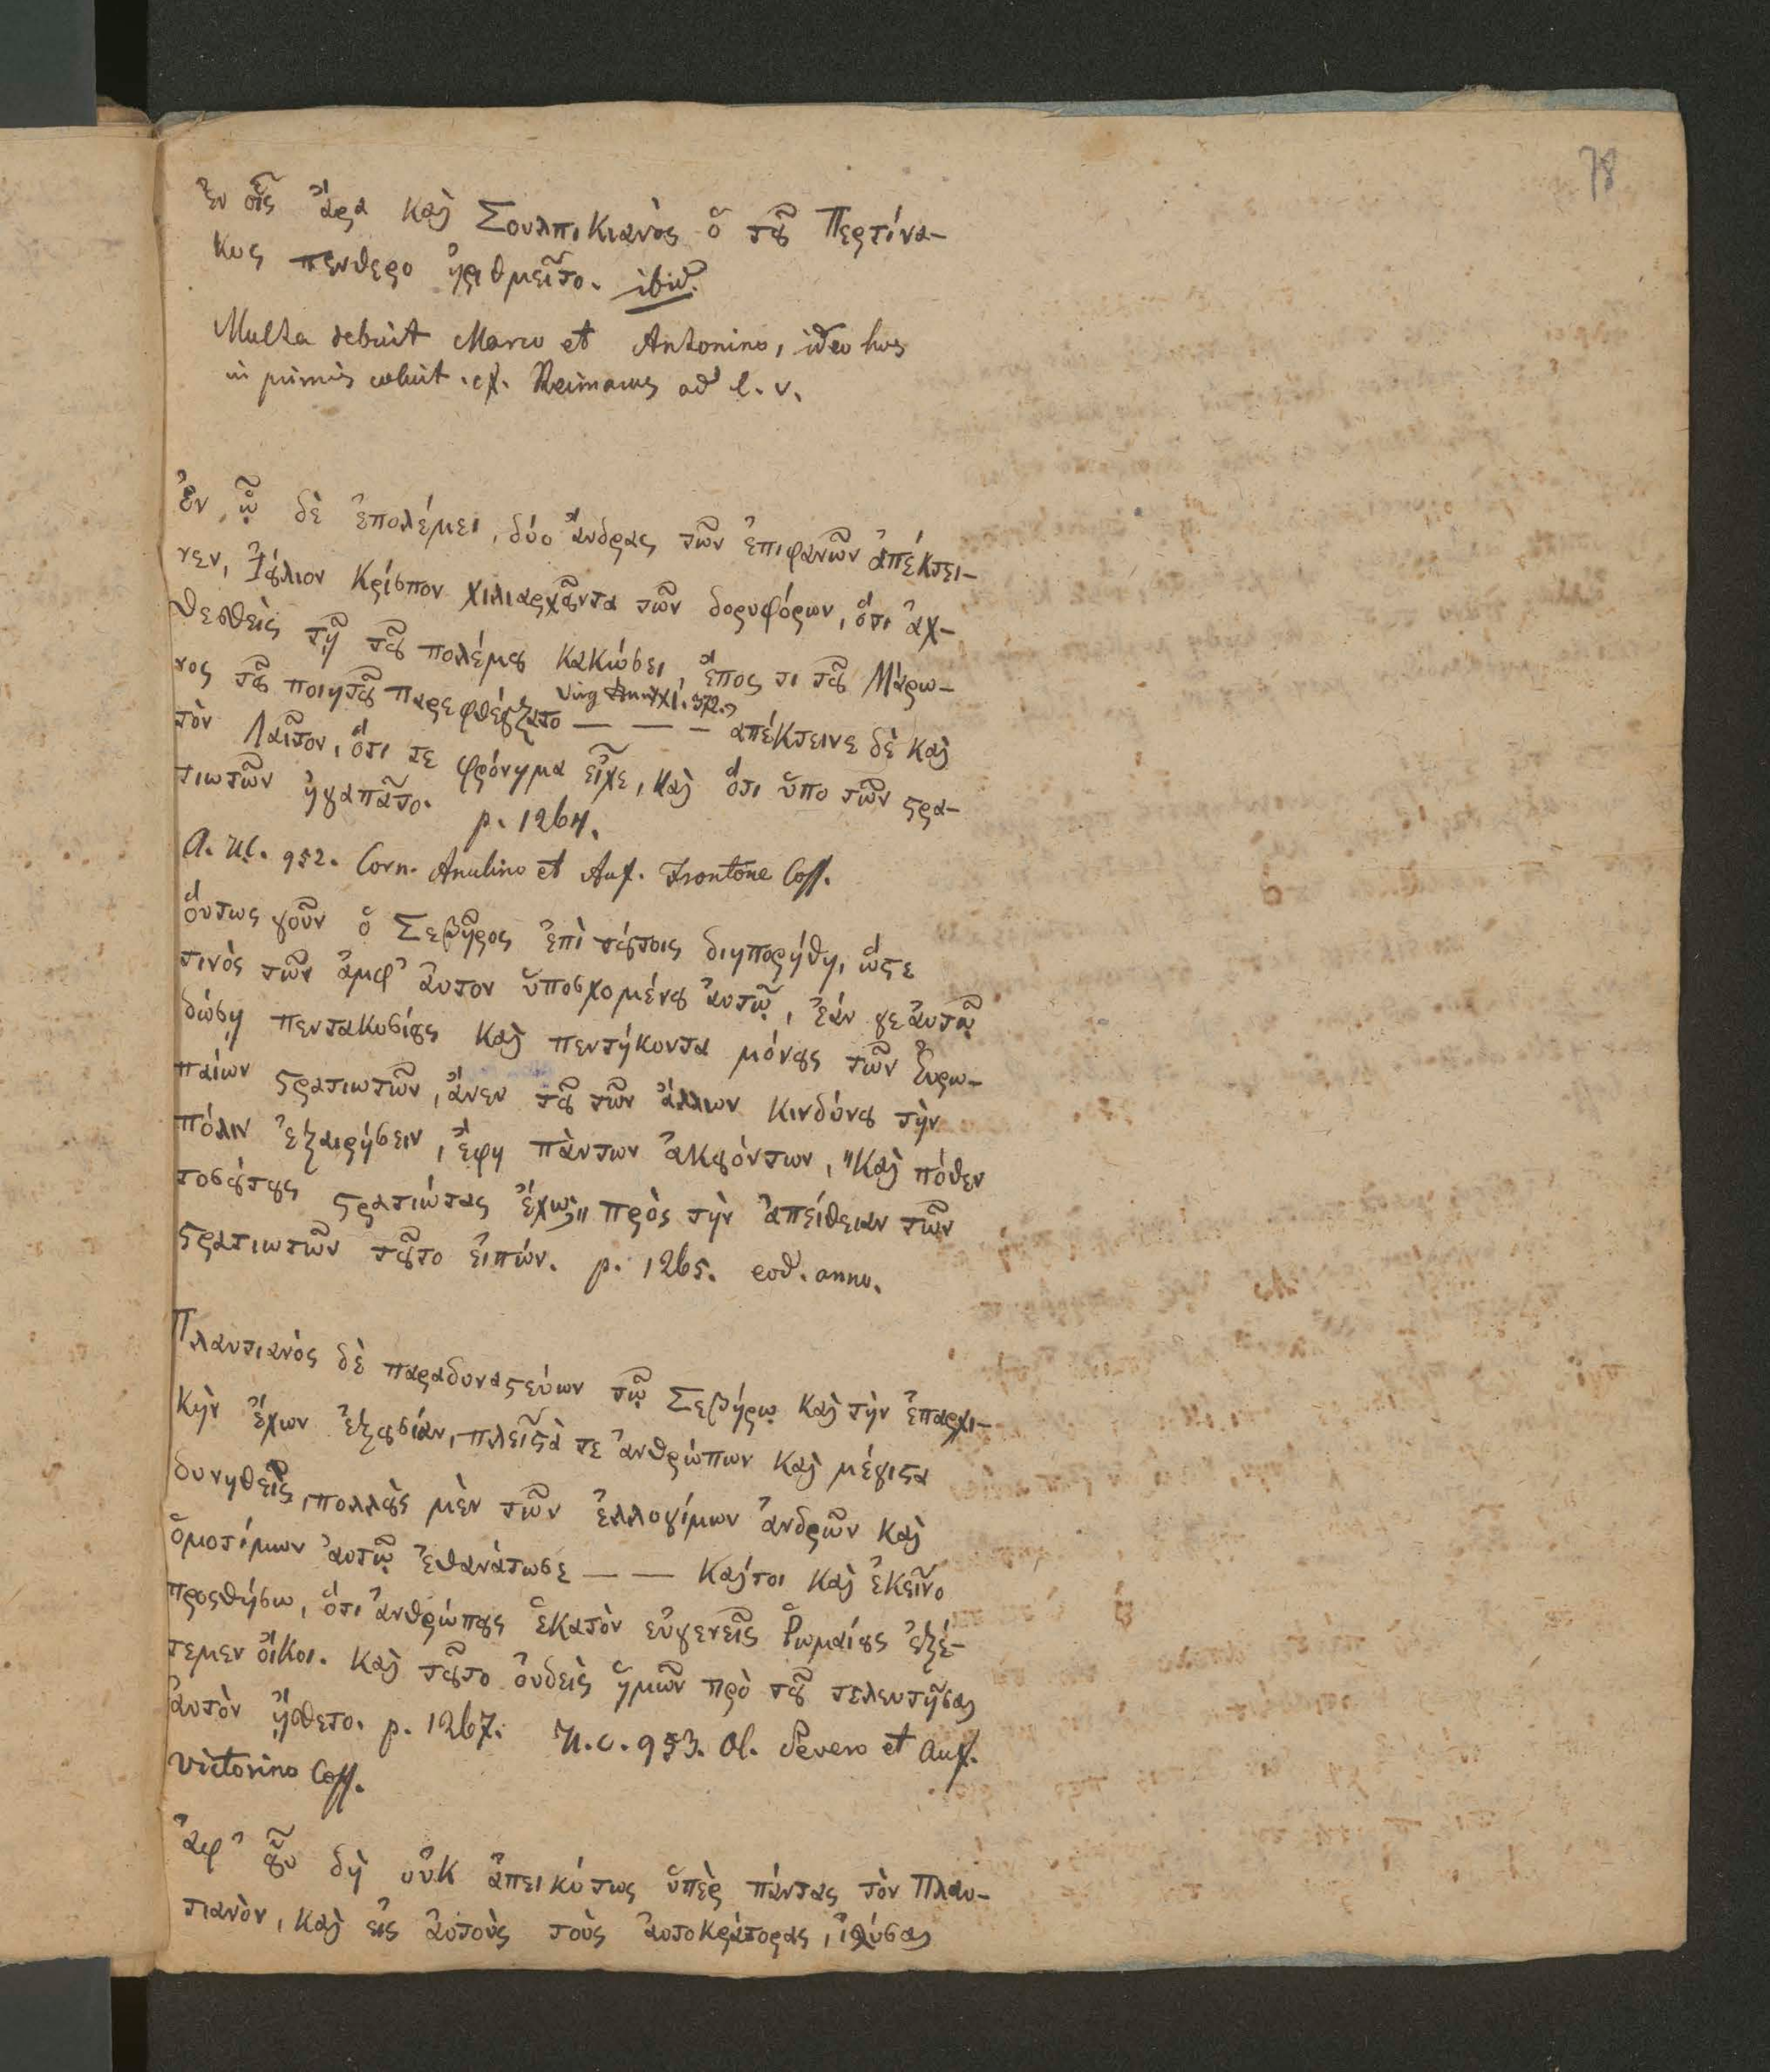 78
ἐν οἷς ἄρα καὶ Σουλπικιανὸς ὁ τοῦ Περτίνα-
κος πενθερο ἠριθμεῖτο. ibid.
Multa debuit Marco et Antonino, ideo hos
in primis coluit. cf. Reimarus ad l. v.
Ἐν ᾧ δὲ ἐπολέμει, δύο ἄνδρας τῶν ἐπιφανῶν ἀπέκτει-
νεν, Ἰούλιον Κρίσπον χιλιαρχοῦντα τῶν δορυφόρων, ὅτι ἀχ-
θεσθεὶς τῇ τοῦ πολέμου κακώσει, ἔπος τι τοῦ Μάρω-
νος τοῦ ποιητοῦ παρεφθέγξατο — — — ἀπέκτεινε δὲ καὶ
Virg XI. 372.
τὸν Λαῖτον, ὅτι τε φρόνημα εἶχε, καὶ ὅτι ὑπο τῶν στρα-
τιωτῶν ἠγαπᾶτο. p. 1264.
A. U.C. 952. Corn. Anulino et Auf. Frontone Coss.
ὅυτως γοῦν ὁ Σεβῆρος ἐπὶ τούτοις διηπορήθη, ὥστε
τινὸς τῶν ἀμφ' ἀυτον ὑποσχομένου ἀυτῷ, ἐάν γε ἀυτῷ
δώσῃ πεντακοσίους καὶ πεντήκοντα μόνους τῶν Ἐυρω-
παίων στρατιωτῶν, ἄνευ τοῦ τῶν ἄλλων κινδύνου τὴν
πόλιν ἐξαιρήσειν, ἔφη πὰντων ἀκουόντων, "Καὶ πόθεν
τοσούτους στρατιώτας ἔχω;" πρὸς τὴν ἀπείθειαν τῶν
στρατιωτῶν τοῦτο ἐιπών. p. 1265. eod. anno.
Πλαυτιανὸς δὲ παραδυναστεύων τῷ Σεβήρῳ καὶ τὴν ἐπαρχι-
κὴν ἔχων ἐξουσίαν, πλεῖστὰ τε ἀνθρώπων καὶ μέγιστα
δυνηθεὶς, πολλοὺς μὲν τῶν ἐλλογίμων ἀνδρῶν καὶ
ὁμοτίμων ἀυτῷ ἐθανάτωσε — — Καίτοι καὶ ἐκεῖνο
προσθήσω, ὅτι ἀνθρώπους ἑκατὸν εὐγενεῖς Ῥωμαίους ἐξέ-
τεμεν ὄικοι. καὶ τοῦτο ὀυδεὶς ἡμῶν πρὸ τοῦ τελευτῆσαι
ἀυτὸν ᾔσθετο. p. 1267. U.C. 953. Cl. Severo et Auf.
Victorino Coss.
ἀφ' οὗ δὴ οὐκ ἀπεικότως ὑπὲρ πάντας τὸν Πλαυ-
τιανὸν, καὶ εἰς ἀυτοὺς τοὺς ἀυτοκράτορας, ἰσχύσαι